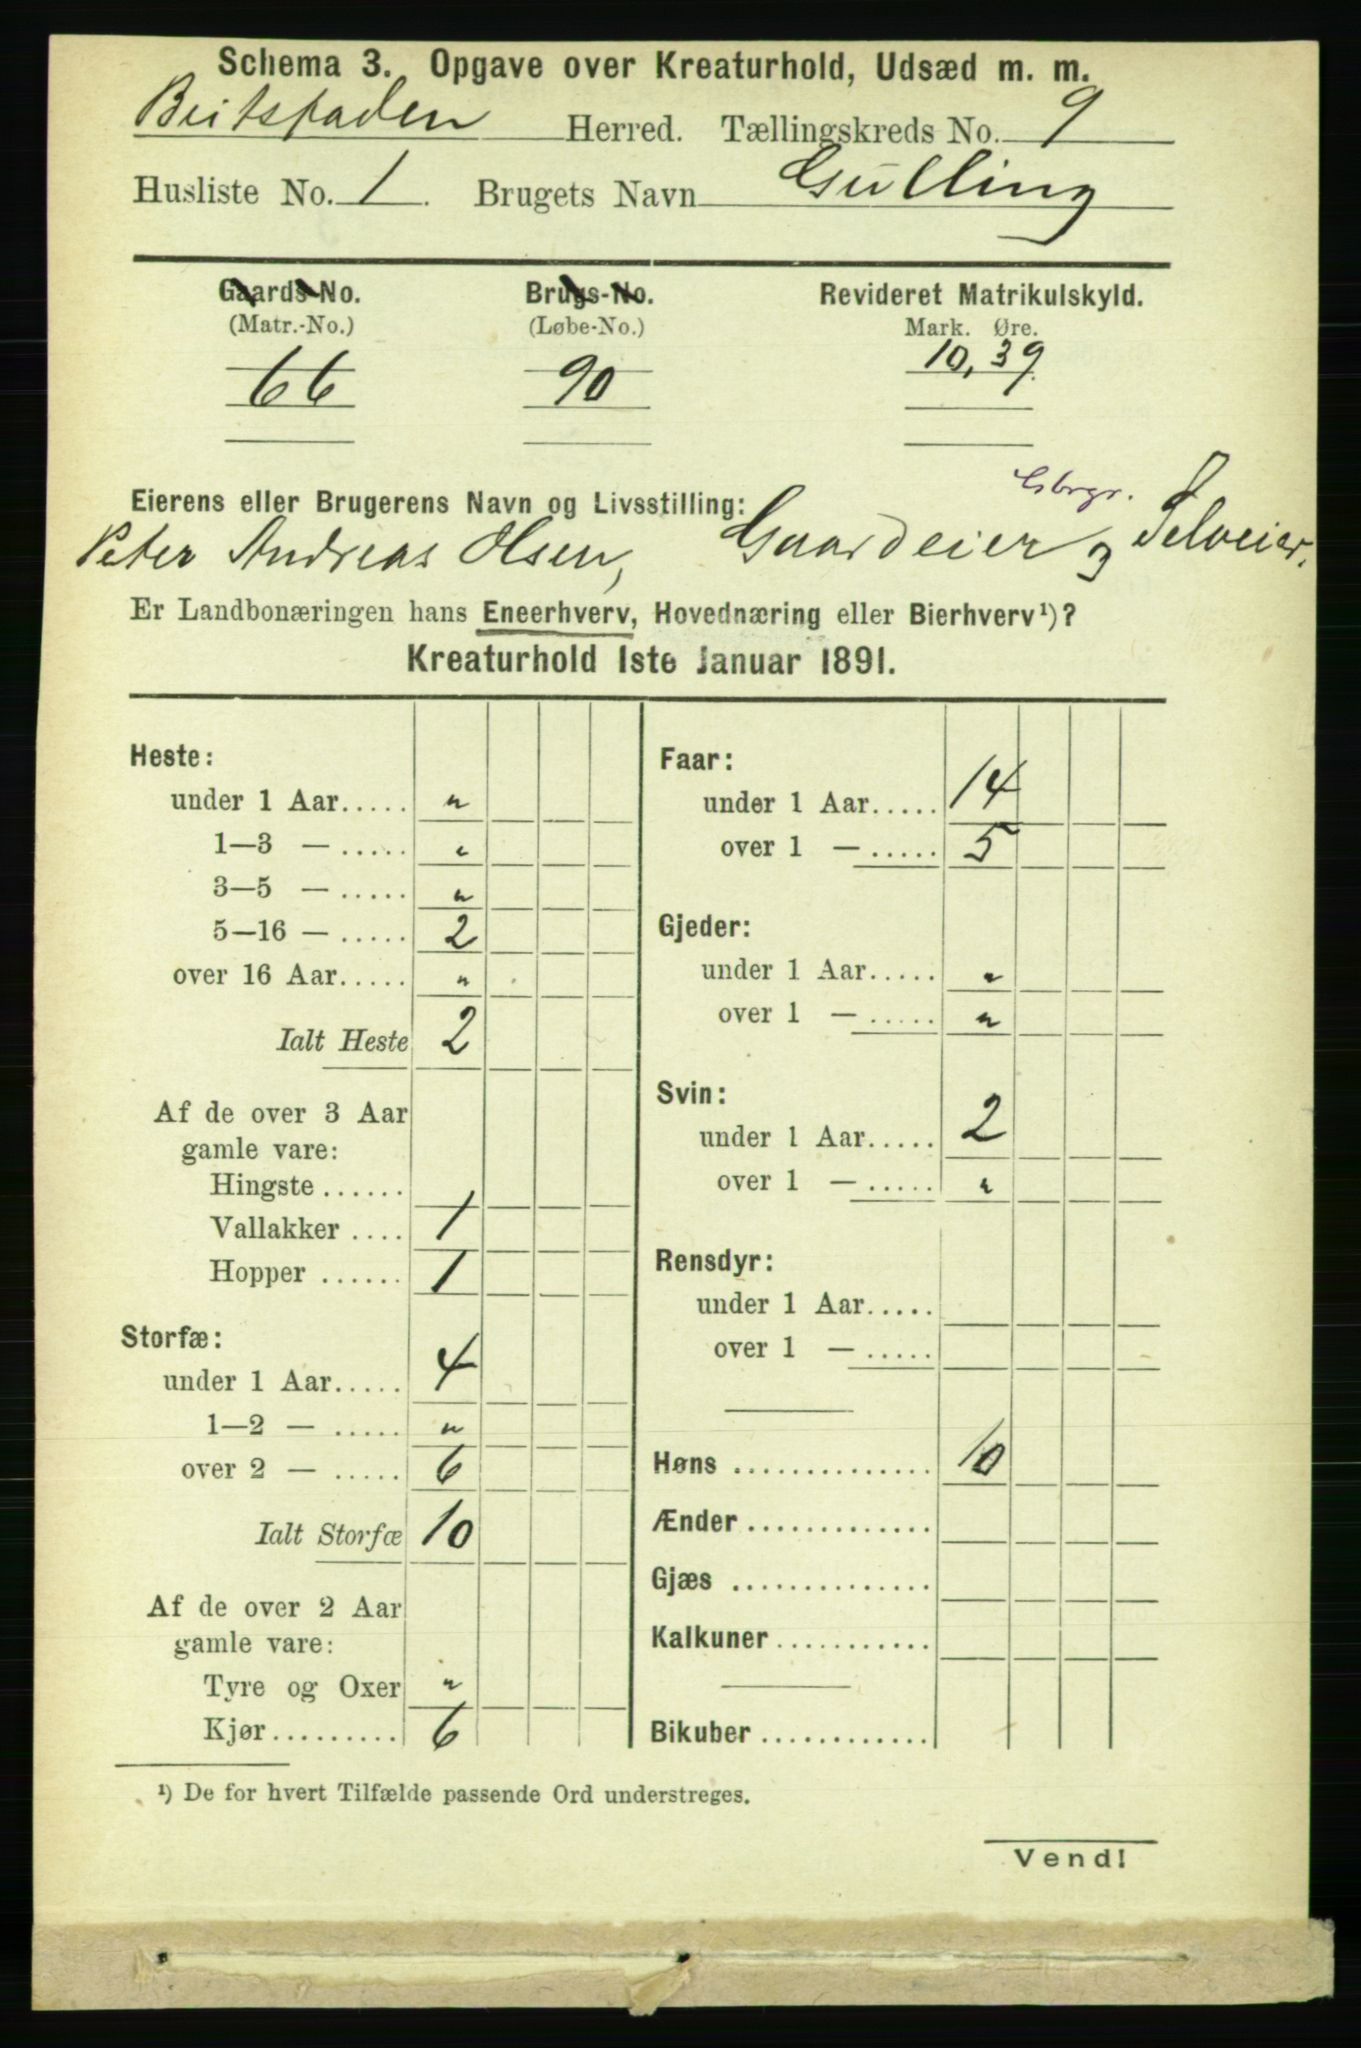 Schema 3. Opgave over Kreaturhold, Udsæd m. m.
Beitstaden Herred. Tællingskreds No. 9
Husliste No. 1. Brugets Navn Gulling
Gaards-No. Brugs-No. Revideret Matrikulskyld.
(Matr.-No.) (Løbe-No.) Mark. Øre.
66 90 10,39.
Gbrgr.
Eierens eller Brugerens Navn og Livsstilling:
Peter Andreas Olsen, Gaardeier og Selveier.
Er Landbonæringen hans Eneerhverv, Hovednæring eller Bierhverv¹)?
Kreaturhold 1ste Januar 1891.
Heste:
under 1 Aar..... "
1—3 — ..... "
3—5 — ..... "
5—16 — ..... 2
over 16 Aar..... "
Ialt Heste 2
Af de over 3 Aar
gamle vare:
Hingste ......
Vallakker .... 1
Hopper ...... 1
Storfæ:
under 1 Aar..... 4
1—2 — ..... "
over 2 — ..... 6
Ialt Storfæ 10
Af de over 2 Aar
gamle vare:
Tyre og Oxer "
Kjør......... 6
Faar:
under 1 Aar..... 14
over 1 — ..... 5
Gjeder:
under 1 Aar..... "
over 1 — ..... "
Svin:
under 1 Aar..... 2
over 1 — ..... "
Rensdyr:
under 1 Aar.....
over 1 — .....
Høns .............. 10
Ænder.............
Gjæs ..............
Kalkuner...........
Bikuber............
¹) De for hvert Tilfælde passende Ord understreges.
Vend!